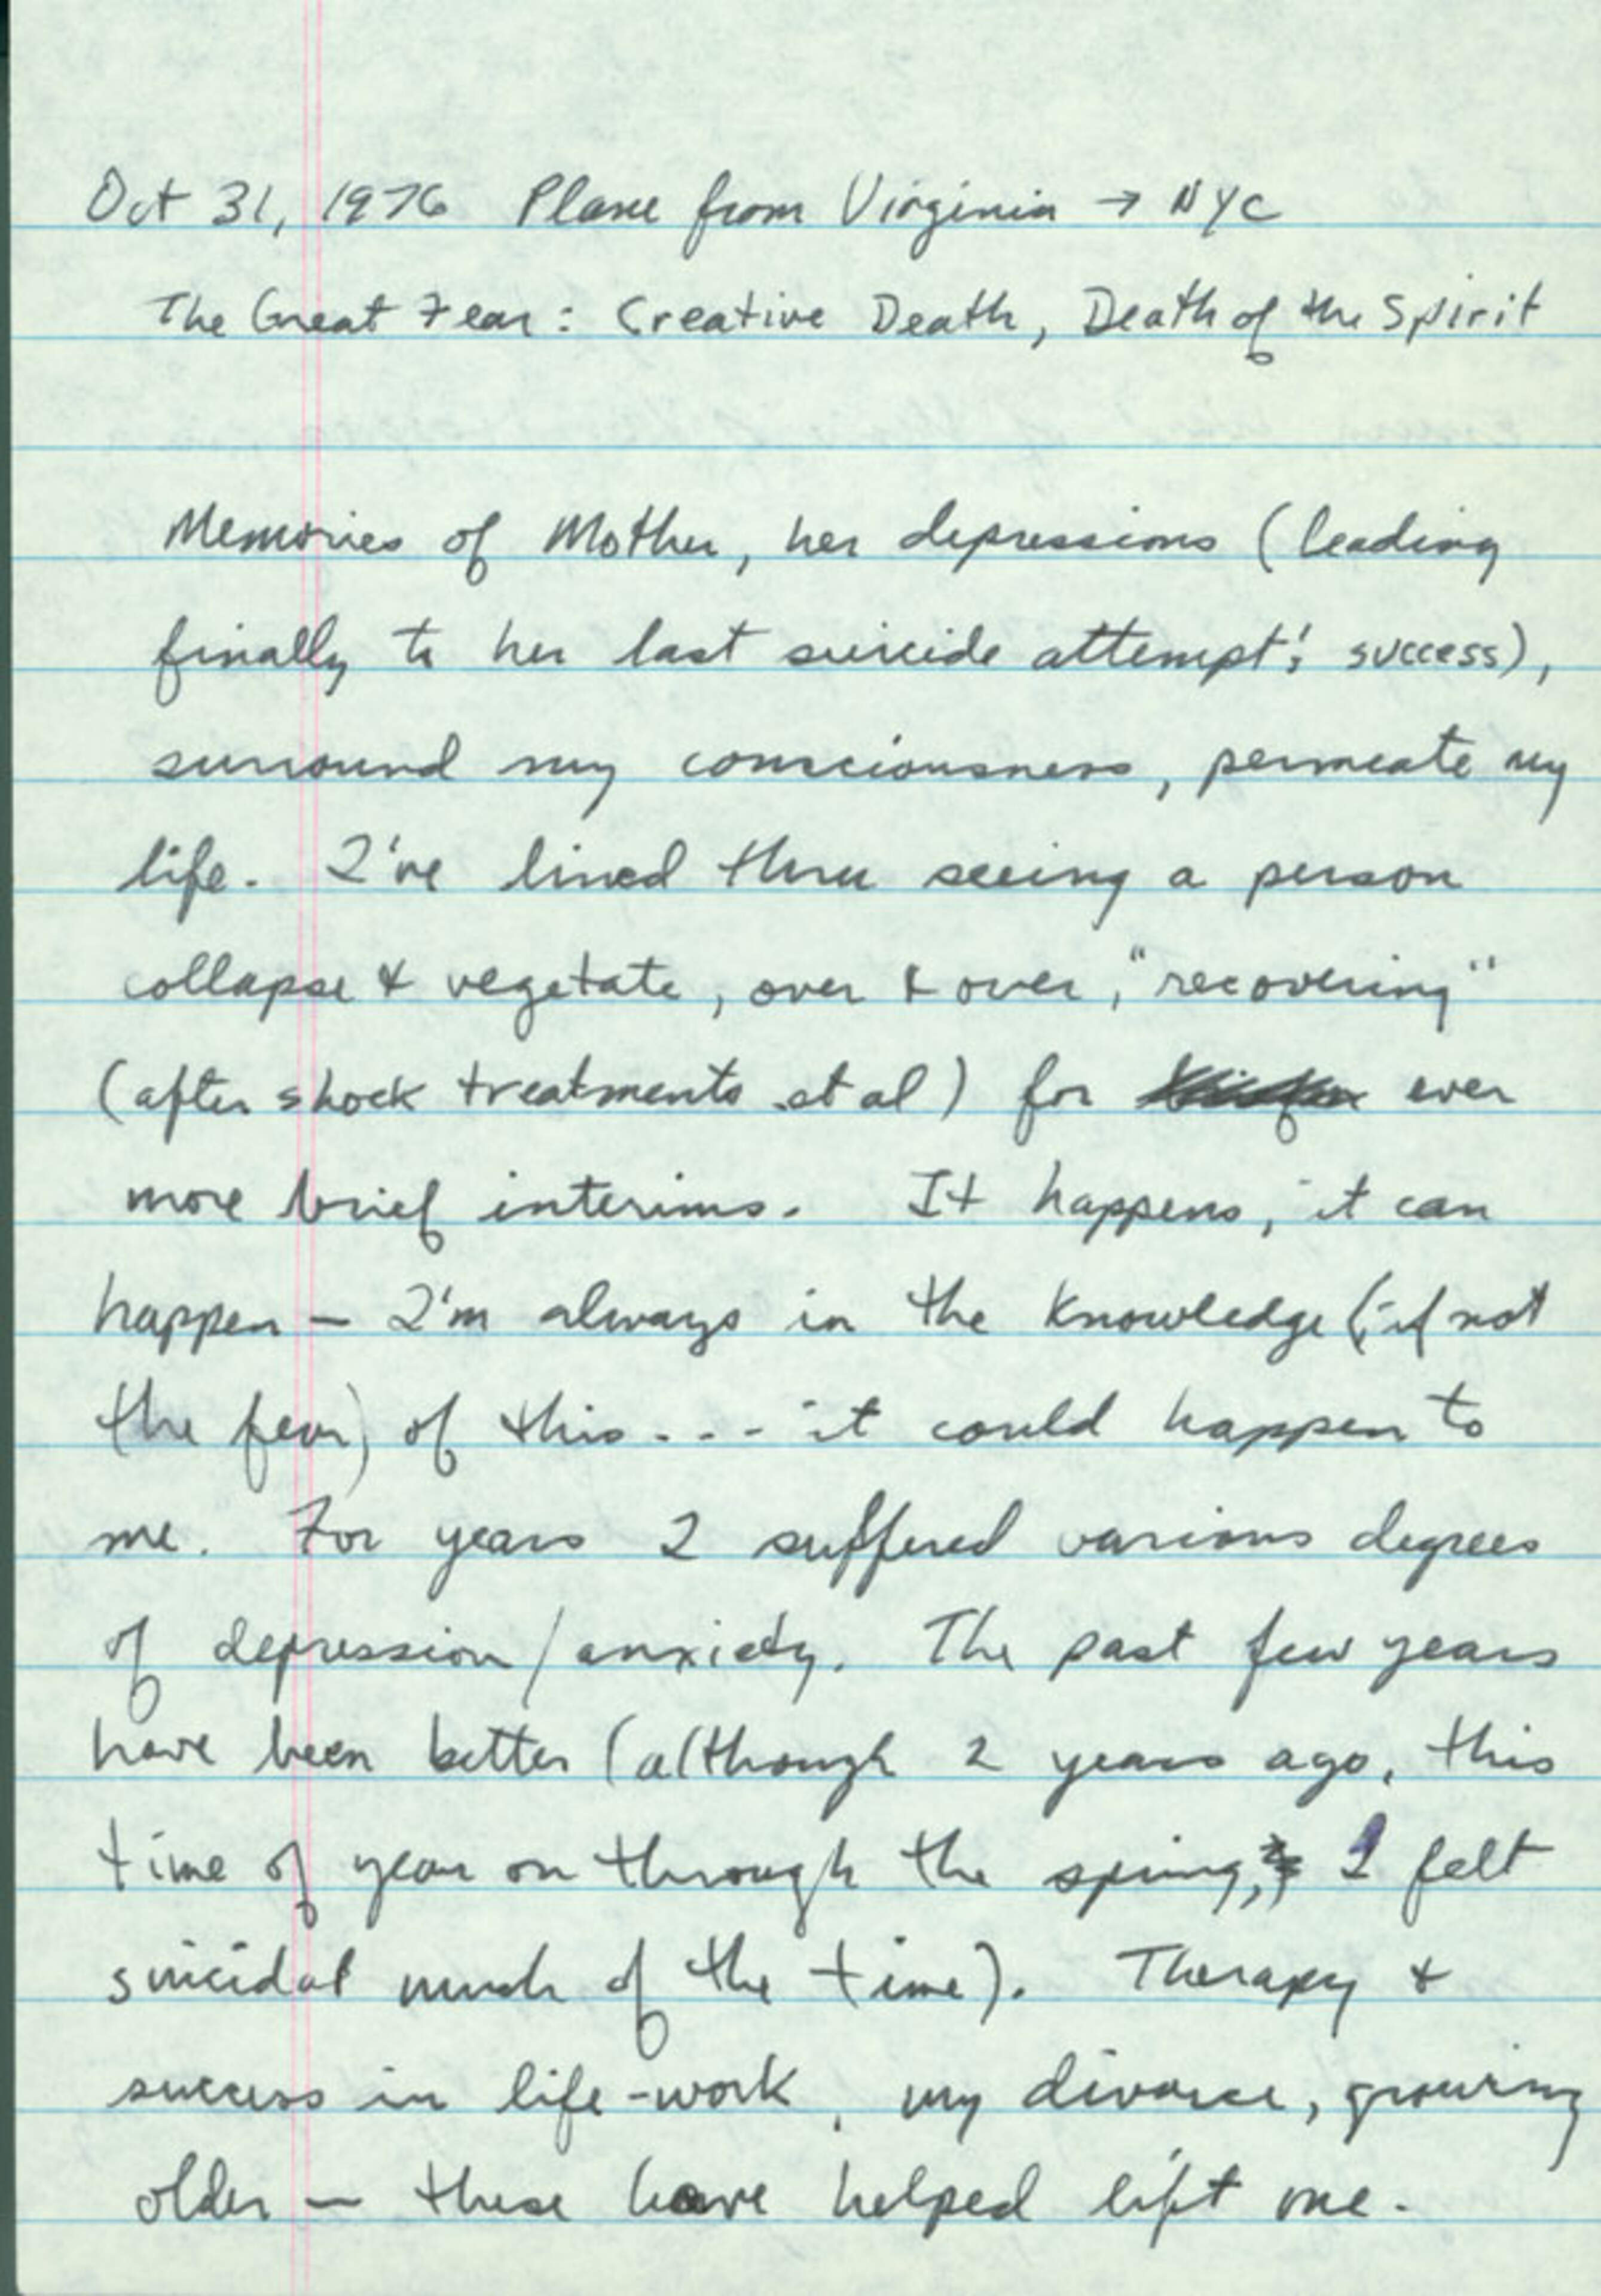 Oct 31, 1976 Plane from Virginia → NYC
The Great Fear: Creative Death, Death of the Spirit
Memories of Mother, her depressions (leading
finally to her last suicide attempt's success),
surround my consciousness, permeate my
life. I've lived thru seeing a person
collapse & vegetate, over & over, "recovering"
(after shock treatments et al) for ever
more brief interims. It happens, it can
happen — I'm always in the knowledge (if not
the fear) of this... it could happen to
me. For years I suffered various degrees
of depression/anxiety. The past few years
have been better (although 2 years ago, this
time of year on through the spring, I felt
suicidal much of the time). Therapy &
success in life-work, my divorce, growing
older — these have helped lift me.